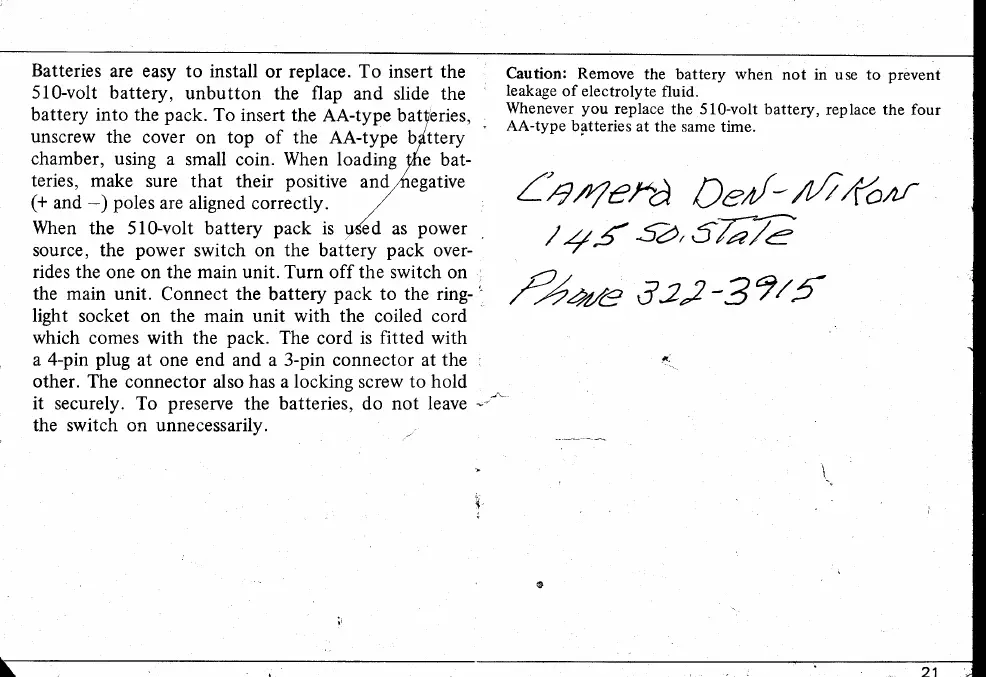 Batteries are easy to install or replace. To insert the
510-volt battery, unbutton the flap and slide the
battery into the pack. To insert the AA-type batteries,
unscrew the cover on top of the AA-type battery
chamber, using a small coin. When loading the bat-
teries, make sure that their positive and negative
(+ and −) poles are aligned correctly.
When the 510-volt battery pack is used as power
source, the power switch on the battery pack over-
rides the one on the main unit. Turn off the switch on
the main unit. Connect the battery pack to the ring-
light socket on the main unit with the coiled cord
which comes with the pack. The cord is fitted with
a 4-pin plug at one end and a 3-pin connector at the
other. The connector also has a locking screw to hold
it securely. To preserve the batteries, do not leave
the switch on unnecessarily.
Caution: Remove the battery when not in use to prevent
leakage of electrolyte fluid.
Whenever you replace the 510-volt battery, replace the four
AA-type batteries at the same time.
Camera Den-Nikon
145 So. State
Phone 322-3915
21